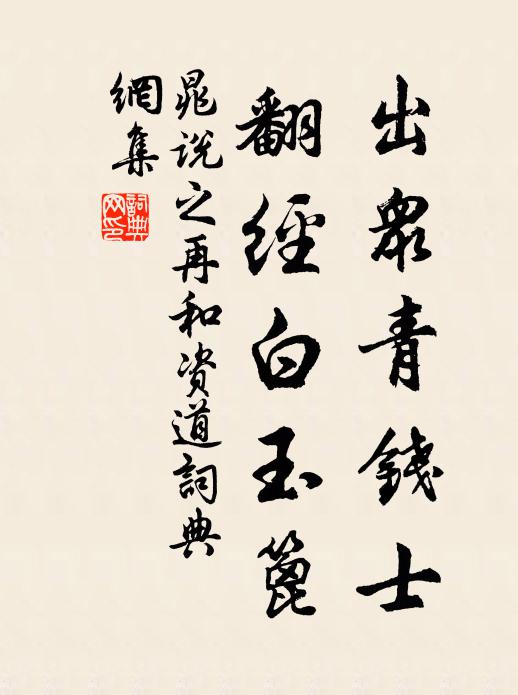 出眾青錢士
翻經白玉篦
晁说之再和资道詞典
網集
詞典
网印